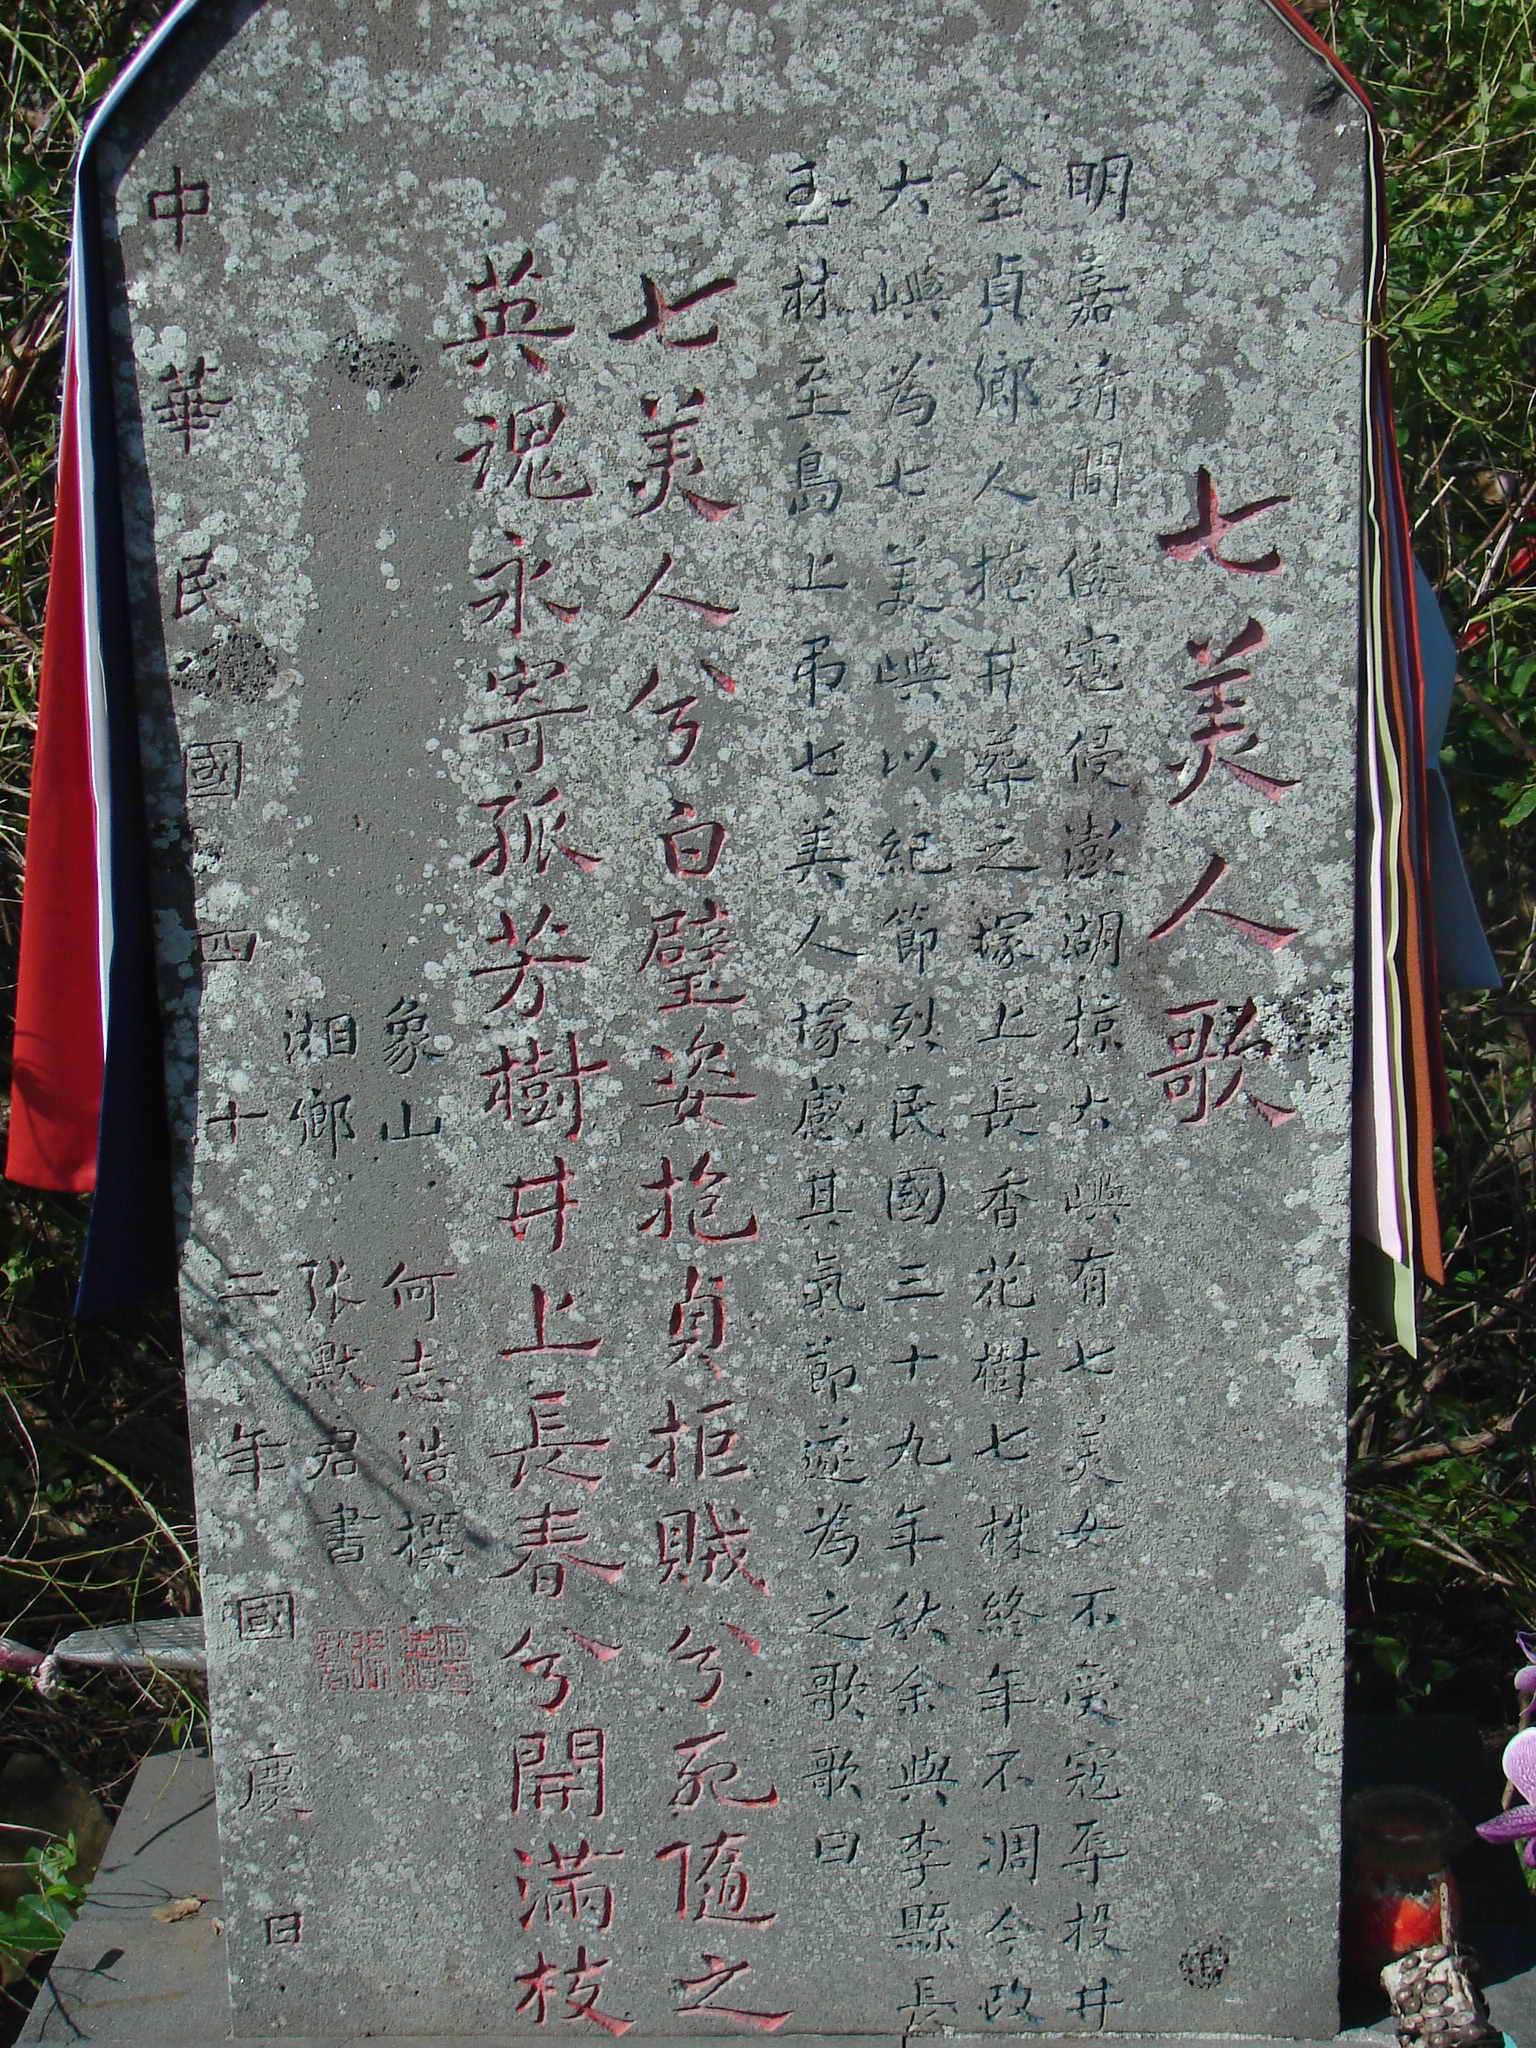 七美人歌
明嘉靖間倭寇侵澎湖掠大嶼有七美女不受寇辱投井
全貞鄉人掩井葬之塚上長香花樹七株終年不凋今改
大嶼為七美嶼以紀節烈民國三十九年秋余與李縣長
玉林至島上弔七美人塚感其氣節遂為之歌歌曰
七美人兮白璧姿抱貞拒賊兮死隨之
英魂永寄孤芳樹井上長春兮開滿枝
象山 何志浩撰
湘鄉 張默君書
中華民國四十二年國慶日